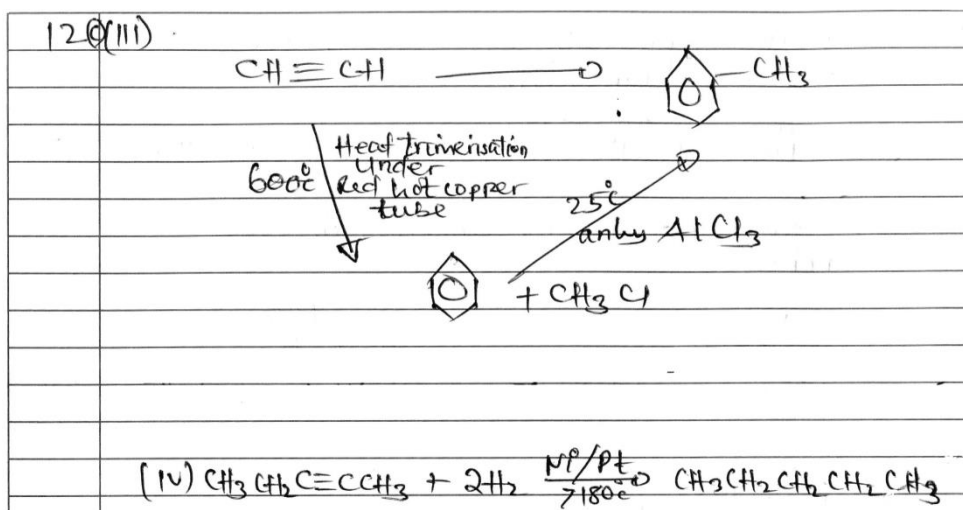 12(C)(III)
CH ≡ CH ⟶ CH3
600°C Heat trimerisation
Under
Red hot copper
tube
25°C
anhy AlCl3
+ CH3Cl
(IV) CH3CH2C≡CCH3 + 2H2 Ni/Pt >180°C CH3CH2CH2CH2CH3